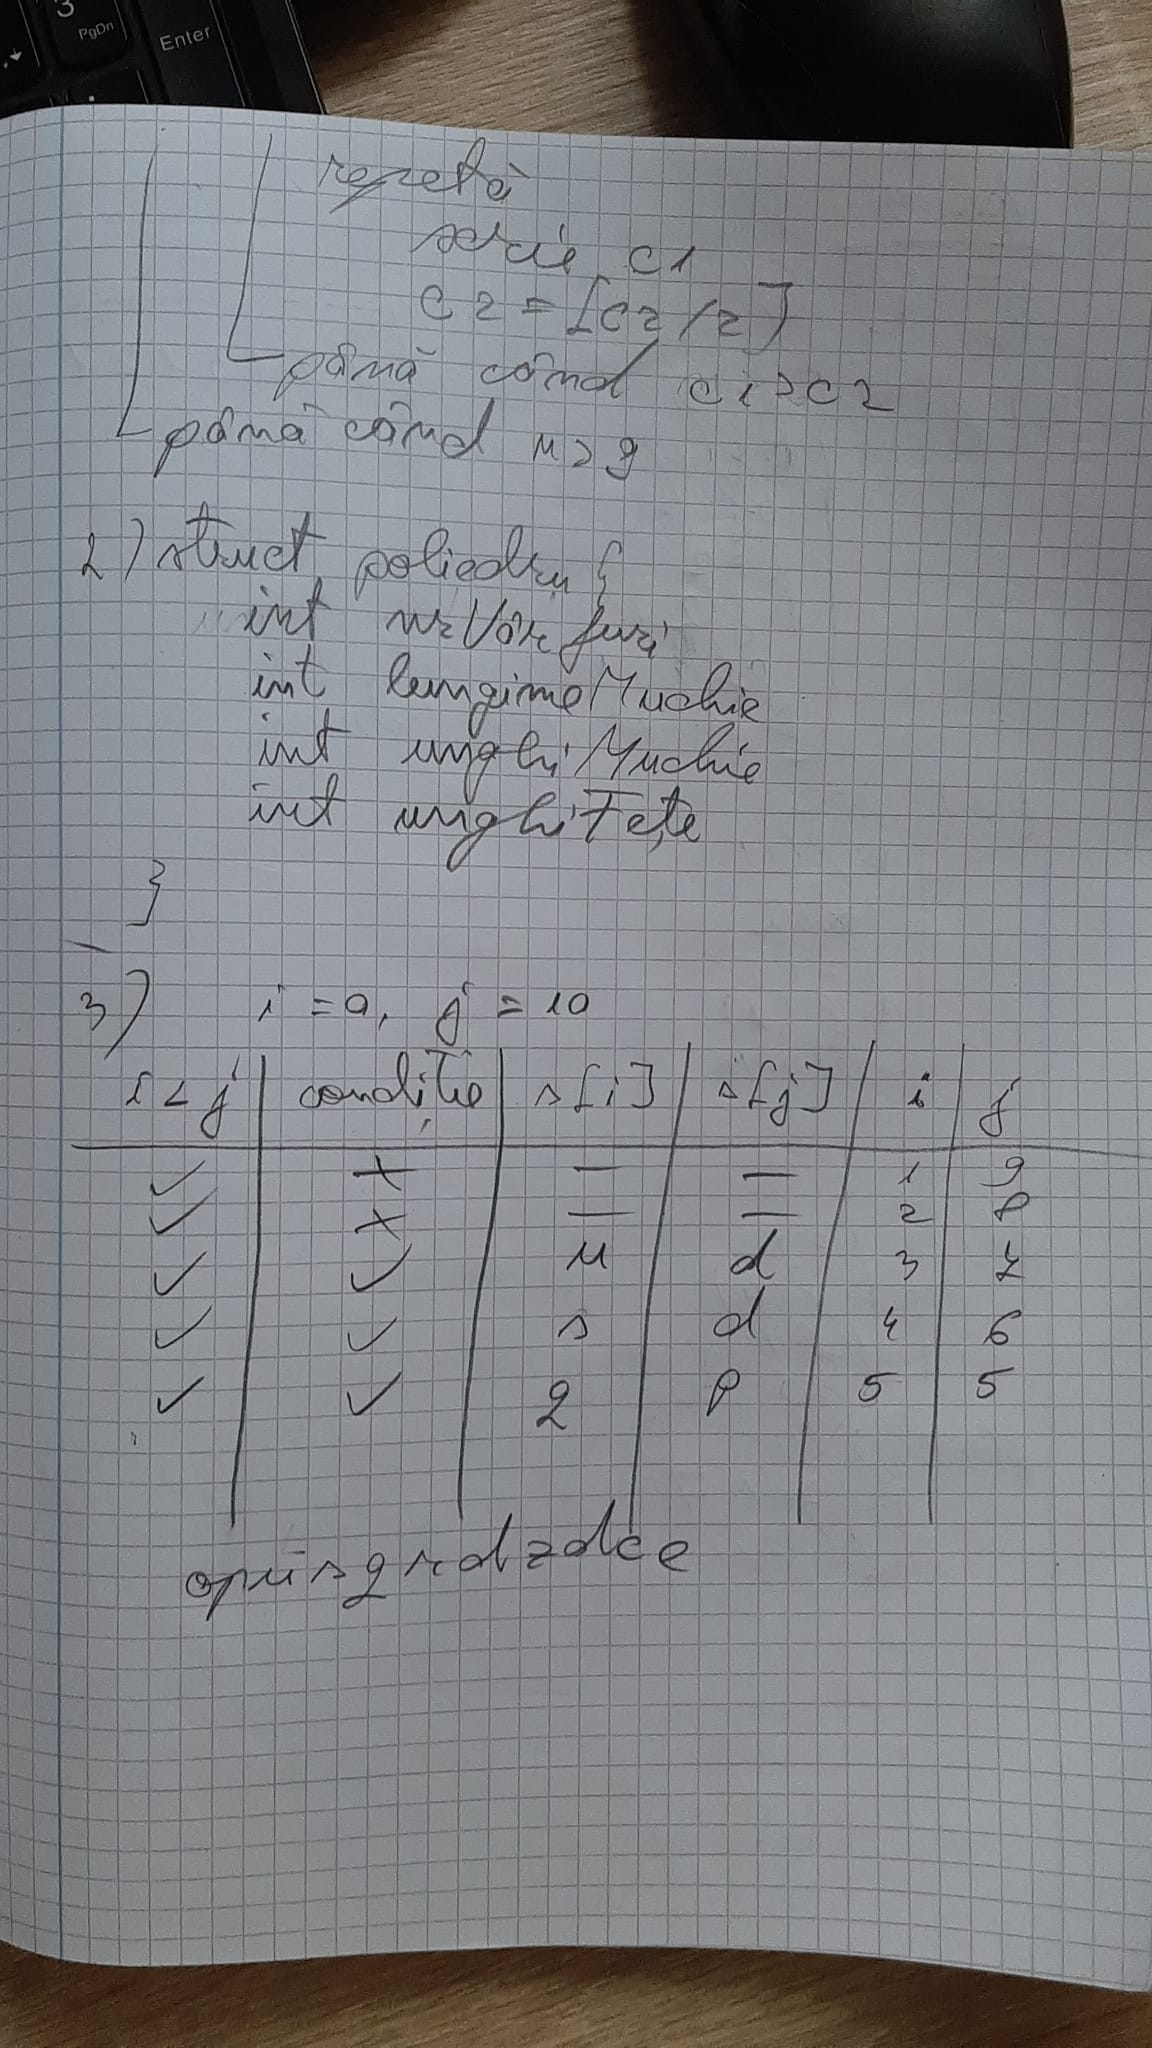 3
PgDn
Enter
repetă
scrie c1
c2 = [c2/2]
până când c1>c2
până când n>9
2) struct poliedru {
int nrVârfuri
int lungimeMuchie
int unghiMuchie
int unghiFețe
}
3) i = 0, j = 10
i < j | condiție | s[i] | s[j] | i | j
✓ | x | — | — | 1 | 9
✓ | x | — | — | 2 | 8
✓ | ✓ | u | d | 3 | 7
✓ | ✓ | s | d | 4 | 6
✓ | ✓ | 2 | p | 5 | 5